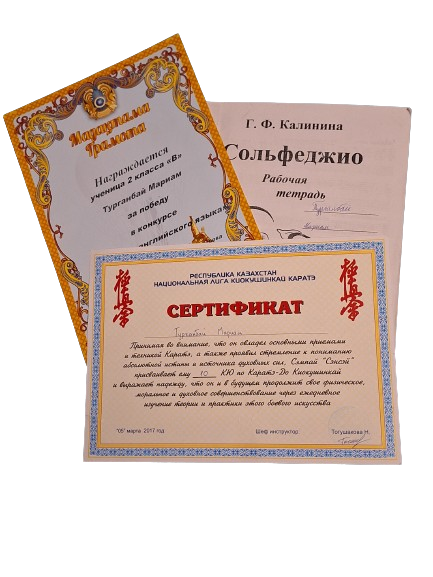 Мадақтама
Грамота
Награждается
ученица 2 класса «В»
Турганбай Мариам
за победу
в конкурсе
английского языка
Г. Ф. Калинина
Сольфеджио
Рабочая
тетрадь
РЕСПУБЛИКА КАЗАХСТАН
НАЦИОНАЛЬНАЯ ЛИГА КИОКУШИНКАЙ КАРАТЭ
СЕРТИФИКАТ
Принимая во внимание, что он овладел основными приемами
и техникой Каратэ, а также проявил стремление к пониманию
абсолютной истины и источника духовных сил, Сэмпай "Сэнсэй"
присваивает ему 10 КЮ по Каратэ-До Киокушинкай
и выражает надежду, что он и в будущем продолжит свое физическое,
моральное и духовное совершенствование через ежедневное
изучение теории и практики этого боевого искусства
"05" марта 2017 год
Шеф инструктор:
Тогушакова Н.